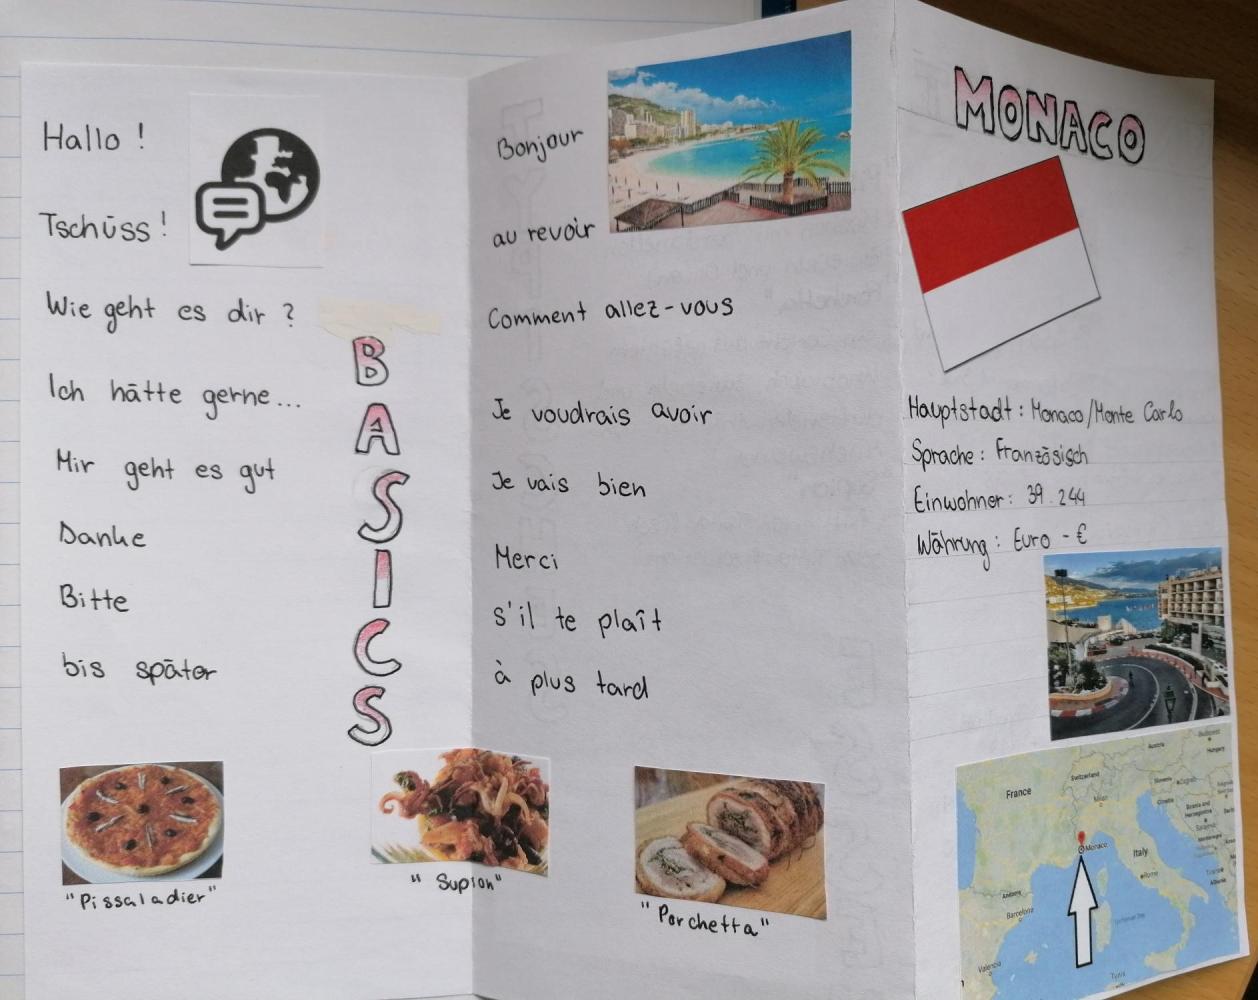 Hallo !
Tschüss !
Wie geht es dir ?
Ich hätte gerne...
Mir geht es gut
Danke
Bitte
bis später
BASICS
"Pissaladier"
"Supion"
Bonjour
au revoir
Comment allez-vous
Je voudrais avoir
Je vais bien
Merci
s'il te plaît
à plus tard
"Porchetta"
MONACO
Hauptstadt : Monaco/Monte Carlo
Sprache : Französisch
Einwohner : 39.244
Währung : Euro - €
Austria
Budapest
Hungary
Switzerland
France
Slovenia
Zagreb
Croatia
Milan
Bosnia and
Herzegovina
Monaco
Italy
Rome
Andorra
Barcelona
Valencia
Tunis